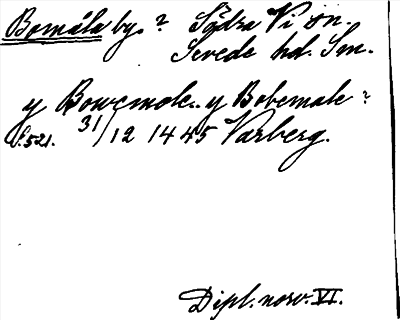 Bomåla by.? Södra Vi sn.
Sevede hd. Sm.
y Bowemole.. y Bobemale?
S. 521. 31/12 1445 Varberg.
Dipl. norv. VI.